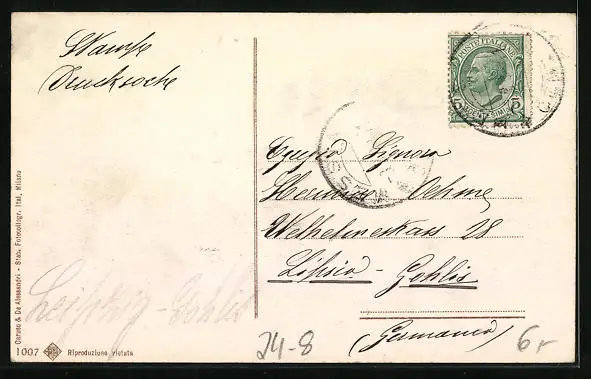 Stampe
Drucksache
POSTE ITALIANE
Egregio Signora
Hermann Oehme
Wilhelmestrass 28
Lipsia - Gohlis
(Germania)
Leipzig-Gohlis
24-8
6r
Caruso & De Alessandri - Stab. Fotocollogr. Ital, Milano
1007 Riproduzione vietata